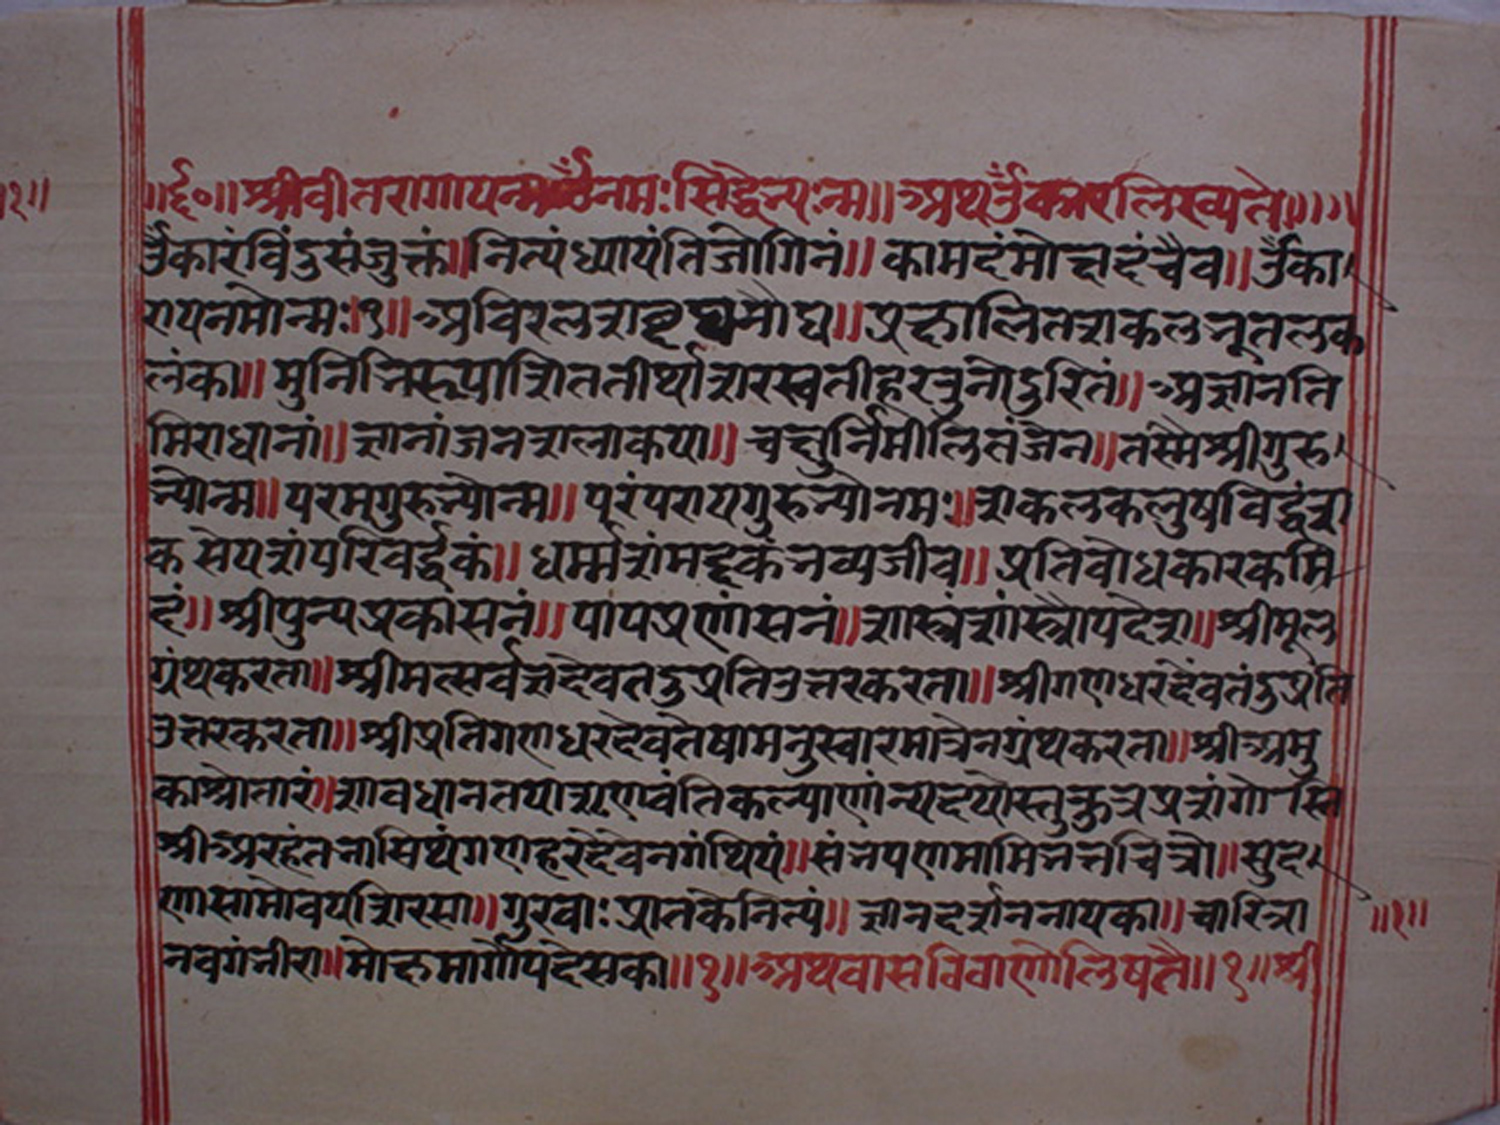 ॥१॥
॥ई०॥श्रीवीतरागायनम ॐनमःसिद्धेभ्यःन्म॥अथॐकारलिख्यते॥
ॐकारंविंदुसंजुक्तं॥नित्यंध्यायंतिजोगिनं॥कामदंमोक्षदंचैव॥ॐका
रायनमोन्मः॥१॥अविरलशब्दघनौघ॥प्रक्षालितशकलभूतलक
लंका॥मुनिभिरूपाशिततीर्थाशरस्वतीहरतुनोदुरितं॥अज्ञानति
मिराधानां॥ज्ञानांजनशलाकया॥चक्षुर्निमीलितंजेन॥तस्मैश्रीगुरु
भ्योन्म॥परमगुरुभ्योन्म॥परंपरायगुरुभ्योनमः॥शकलकलुषविद्धंश
कसेयशंपरिवर्द्धकं॥धर्म्मशंमद्धकंभव्यजीव॥प्रतिवोधकारकमि
दं॥श्रीपुन्यप्रकासनं॥पापप्रणासनं॥शास्त्रंशास्त्रौपदेश॥श्रीमूल
ग्रंथकरता॥श्रीमत्सर्वज्ञदेवतदुप्रतिउत्तरकरता॥श्रीगणधरदेवतंदुप्रति
उत्तरकरता॥श्रीप्रतिगणधरदेवतेषामनुस्वारमात्रेनग्रंथकरता॥श्रीअमु
काश्रोतारं॥शावधानतयाशृण्वंति
श्रीअरहंतभासिथंगणहरदेवेनगंथियं॥संनपणमामि
॥सुद
णासामोवयशिरसा॥गुरवाःप्रातकेनित्यं॥ज्ञानदर्शननायका॥चारित्रा
नवगंभीरा॥मोक्षमार्गोपदेसका॥१॥अथवासविवाणोलिषतै॥१॥श्री
॥१॥